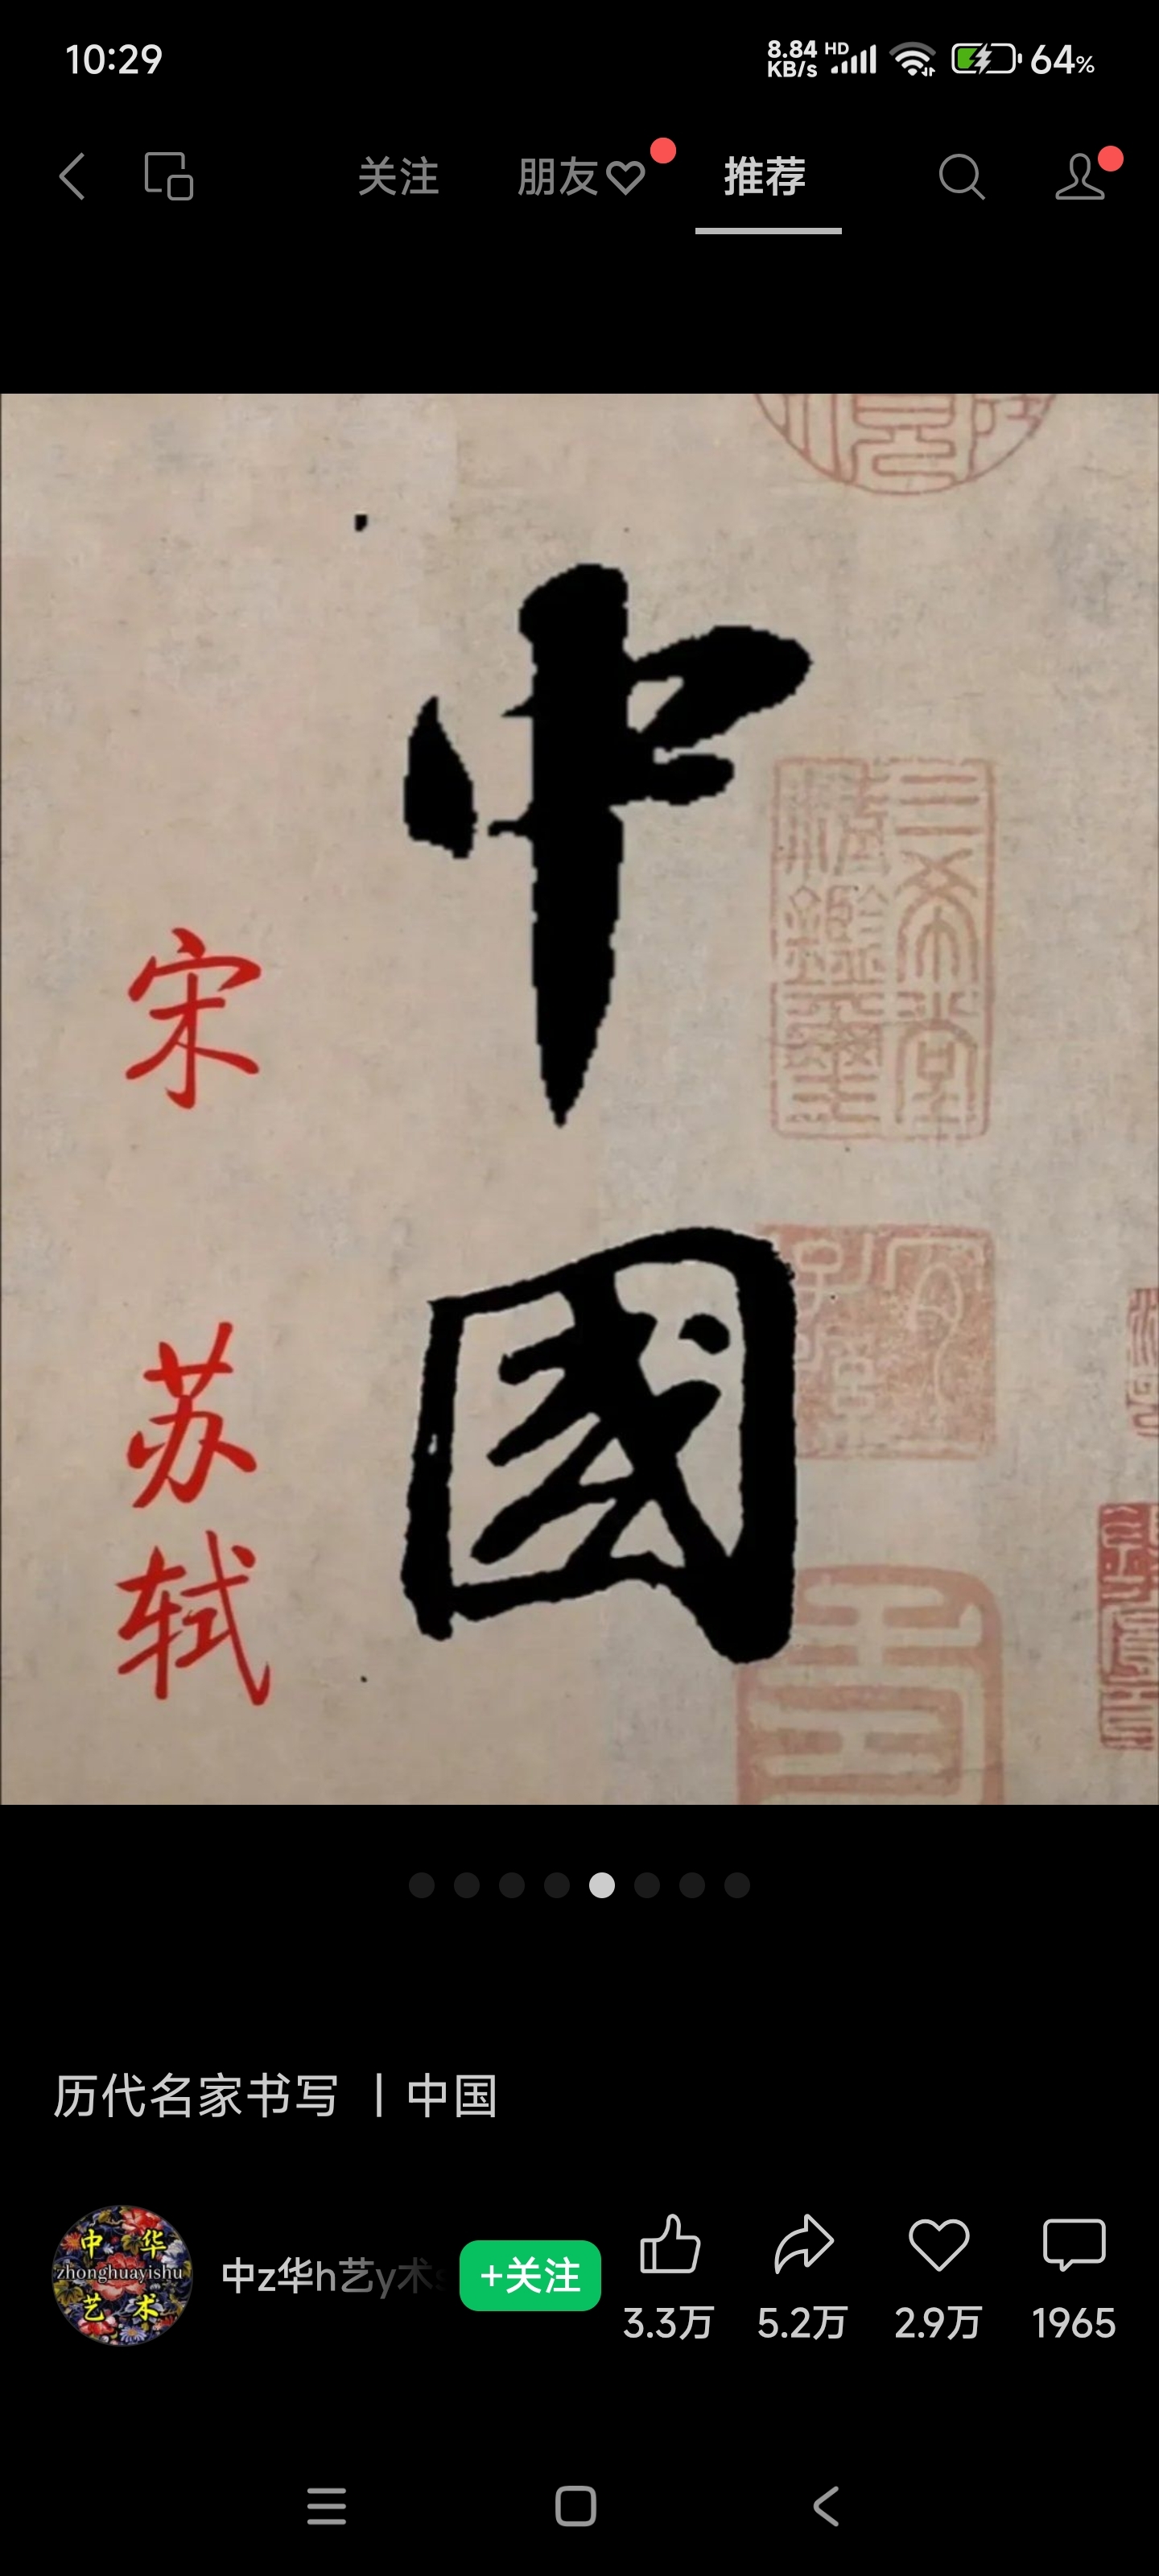 10:29
8.84 KB/s HD 64%
关注 朋友 推荐
中國
宋 苏轼
三希堂精鑑璽
历代名家书写 | 中国
中华艺术
zhonghuayishu
中z华h艺y术
+关注
3.3万 5.2万 2.9万 1965